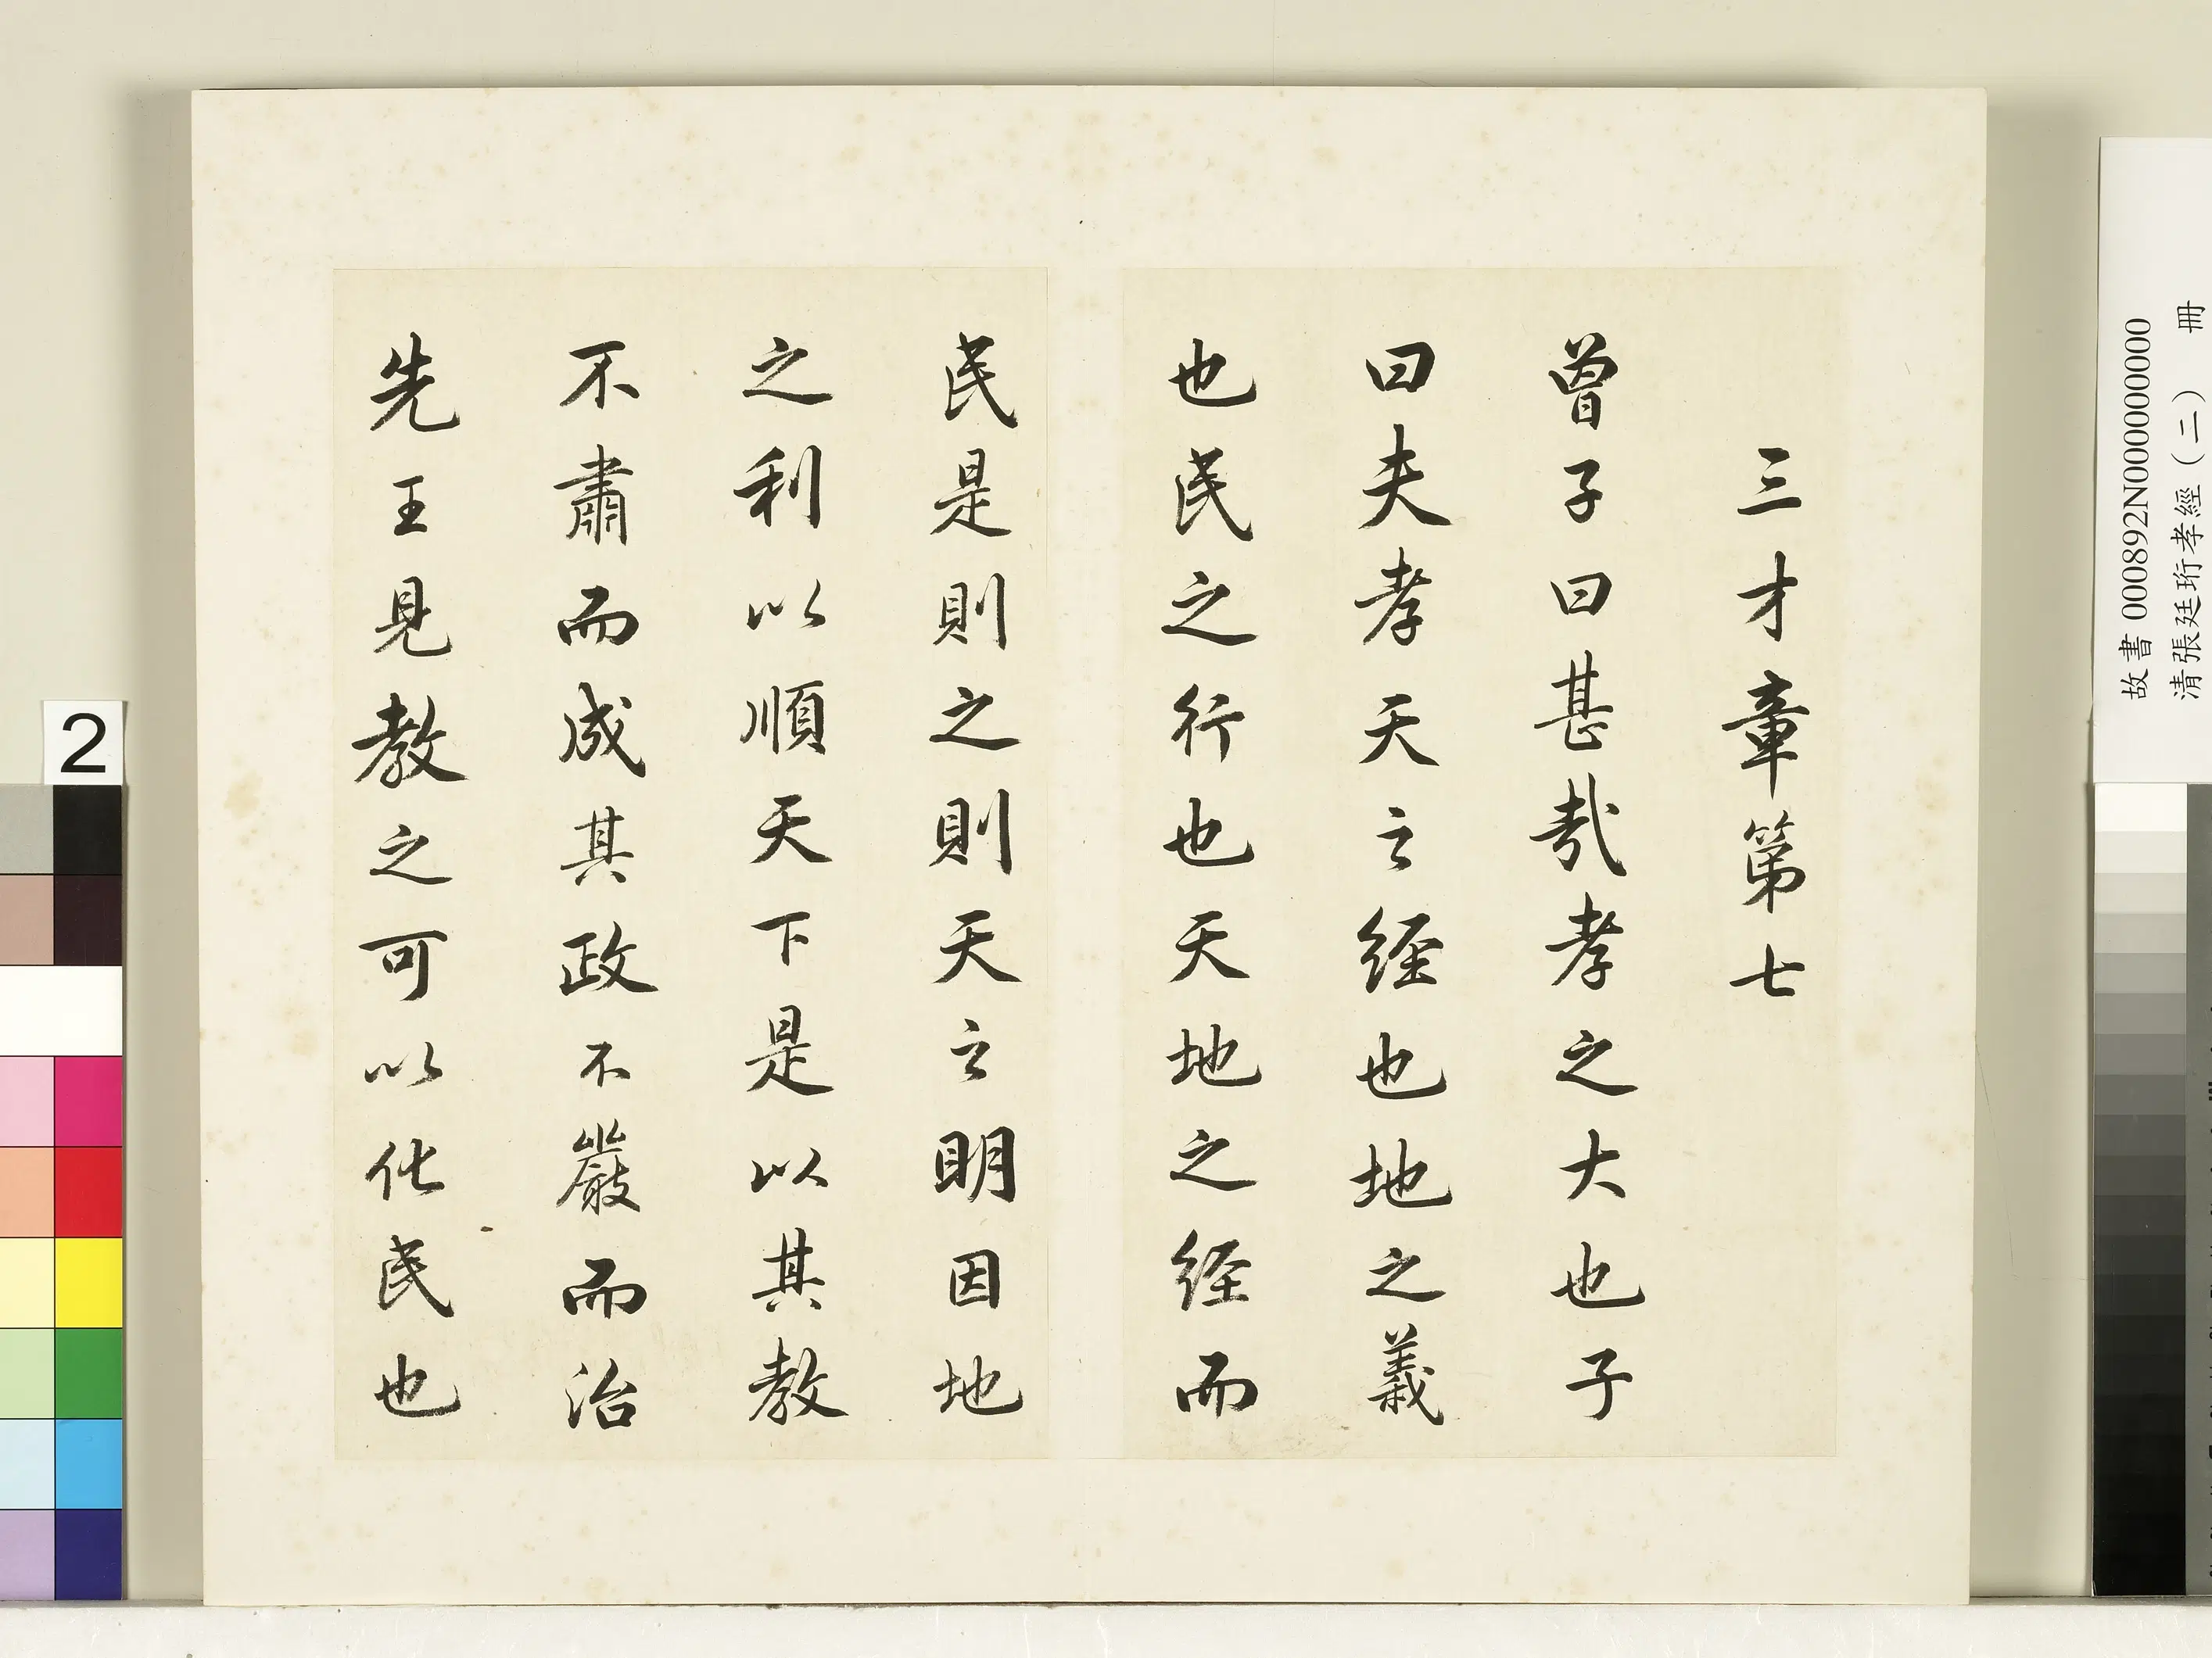 三才章第七
曾子曰甚哉孝之大也子
曰夫孝天之經也地之義
也民之行也天地之經而
民是則之則天之明因地
之利以順天下是以其教
不肅而成其政不嚴而治
先王見教之可以化民也
故書 000892N000000000
清張廷珩孝經（二） 冊
2